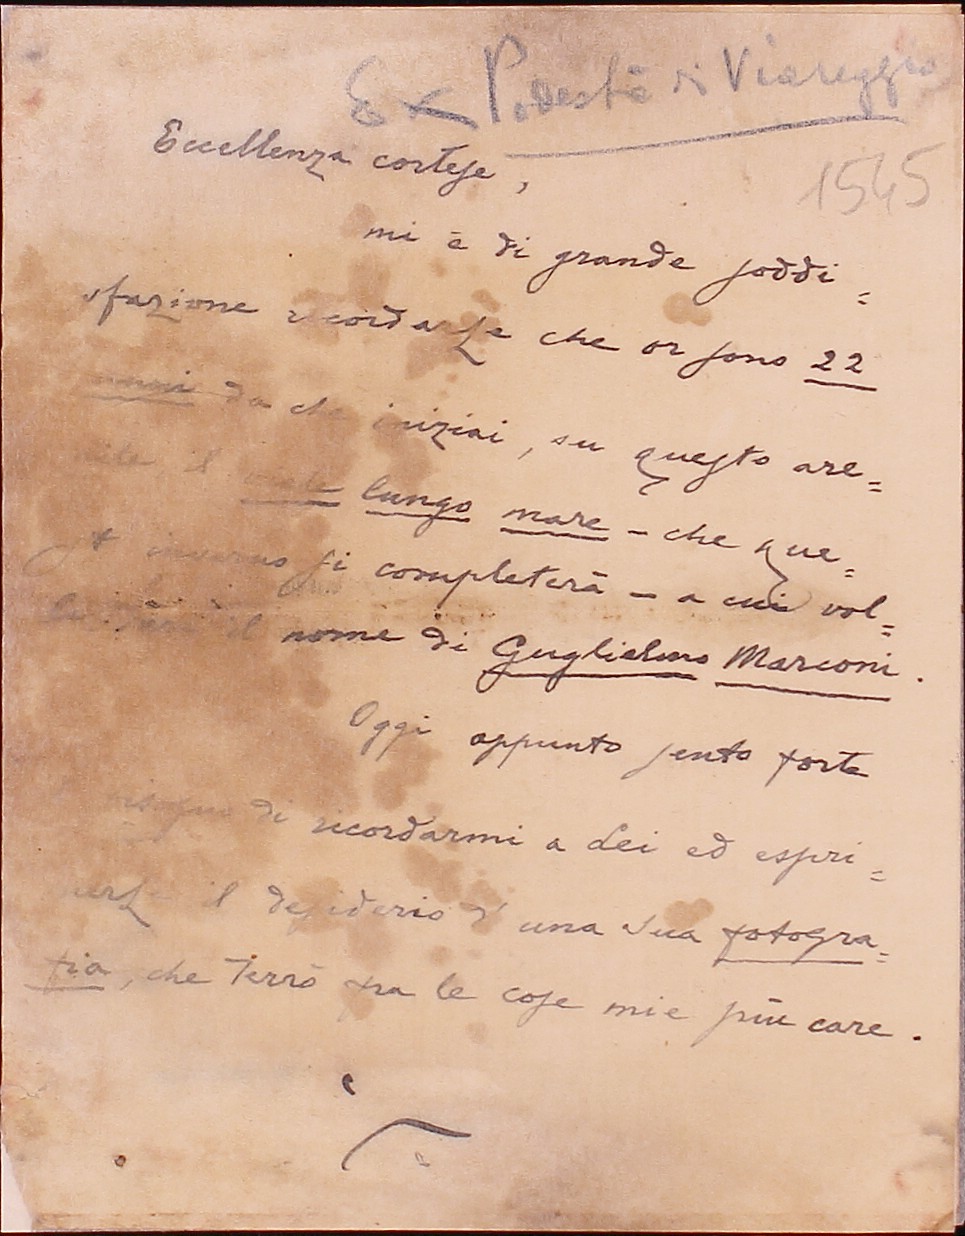 Ex Podestà di Viareggio
1545
Eccellenza cortese,
mi è di grande soddi=
sfazione ricordarLe che or sono 22
anni da che iniziai, su questo are=
nile il viale lungo mare – che que=
st'inverno si completerà – a cui vol=
li il nome di Guglielmo Marconi.
Oggi appunto sento forte
bisogno di ricordarmi a Lei ed espri=
merLe il desiderio d'una Sua fotogra=
fia, che Terrò fra le cose mie più care.